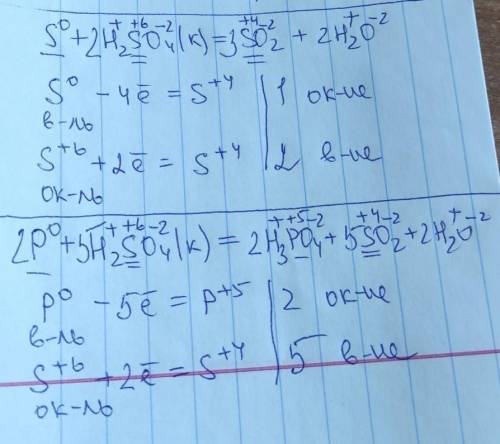 S⁰ + 2H₂⁺S⁺⁶O₄⁻²(к) = 3S⁺⁴O₂⁻² + 2H₂⁺O⁻²
S⁰ - 4ē = S⁺⁴ | 1 ок-ие
в-ль
S⁺⁶ + 2ē = S⁺⁴ | 2 в-ие
ок-ль
2P⁰ + 5H₂⁺S⁺⁶O₄⁻²(к) = 2H₃⁺P⁺⁵O₄⁻² + 5S⁺⁴O₂⁻² + 2H₂⁺O⁻²
P⁰ - 5ē = P⁺⁵ | 2 ок-ие
в-ль
S⁺⁶ + 2ē = S⁺⁴ | 5 в-ие
ок-ль